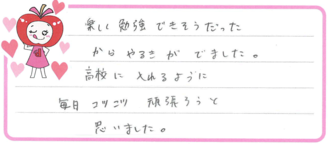 楽しい勉強できそうだった
からやるきがでました。
高校に入れるように
毎日コツコツ頑張ろうと
思いました。